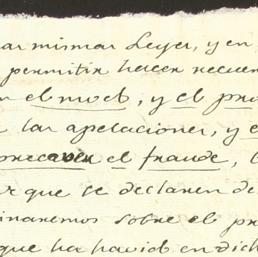 ar mismas Leyes, y en
permitir hacer recuen
el moel, y el pro
las apelaciones, y e
precaver el fraude,
que se declaren de
inaremos sobre el pr
que ha havido en dich